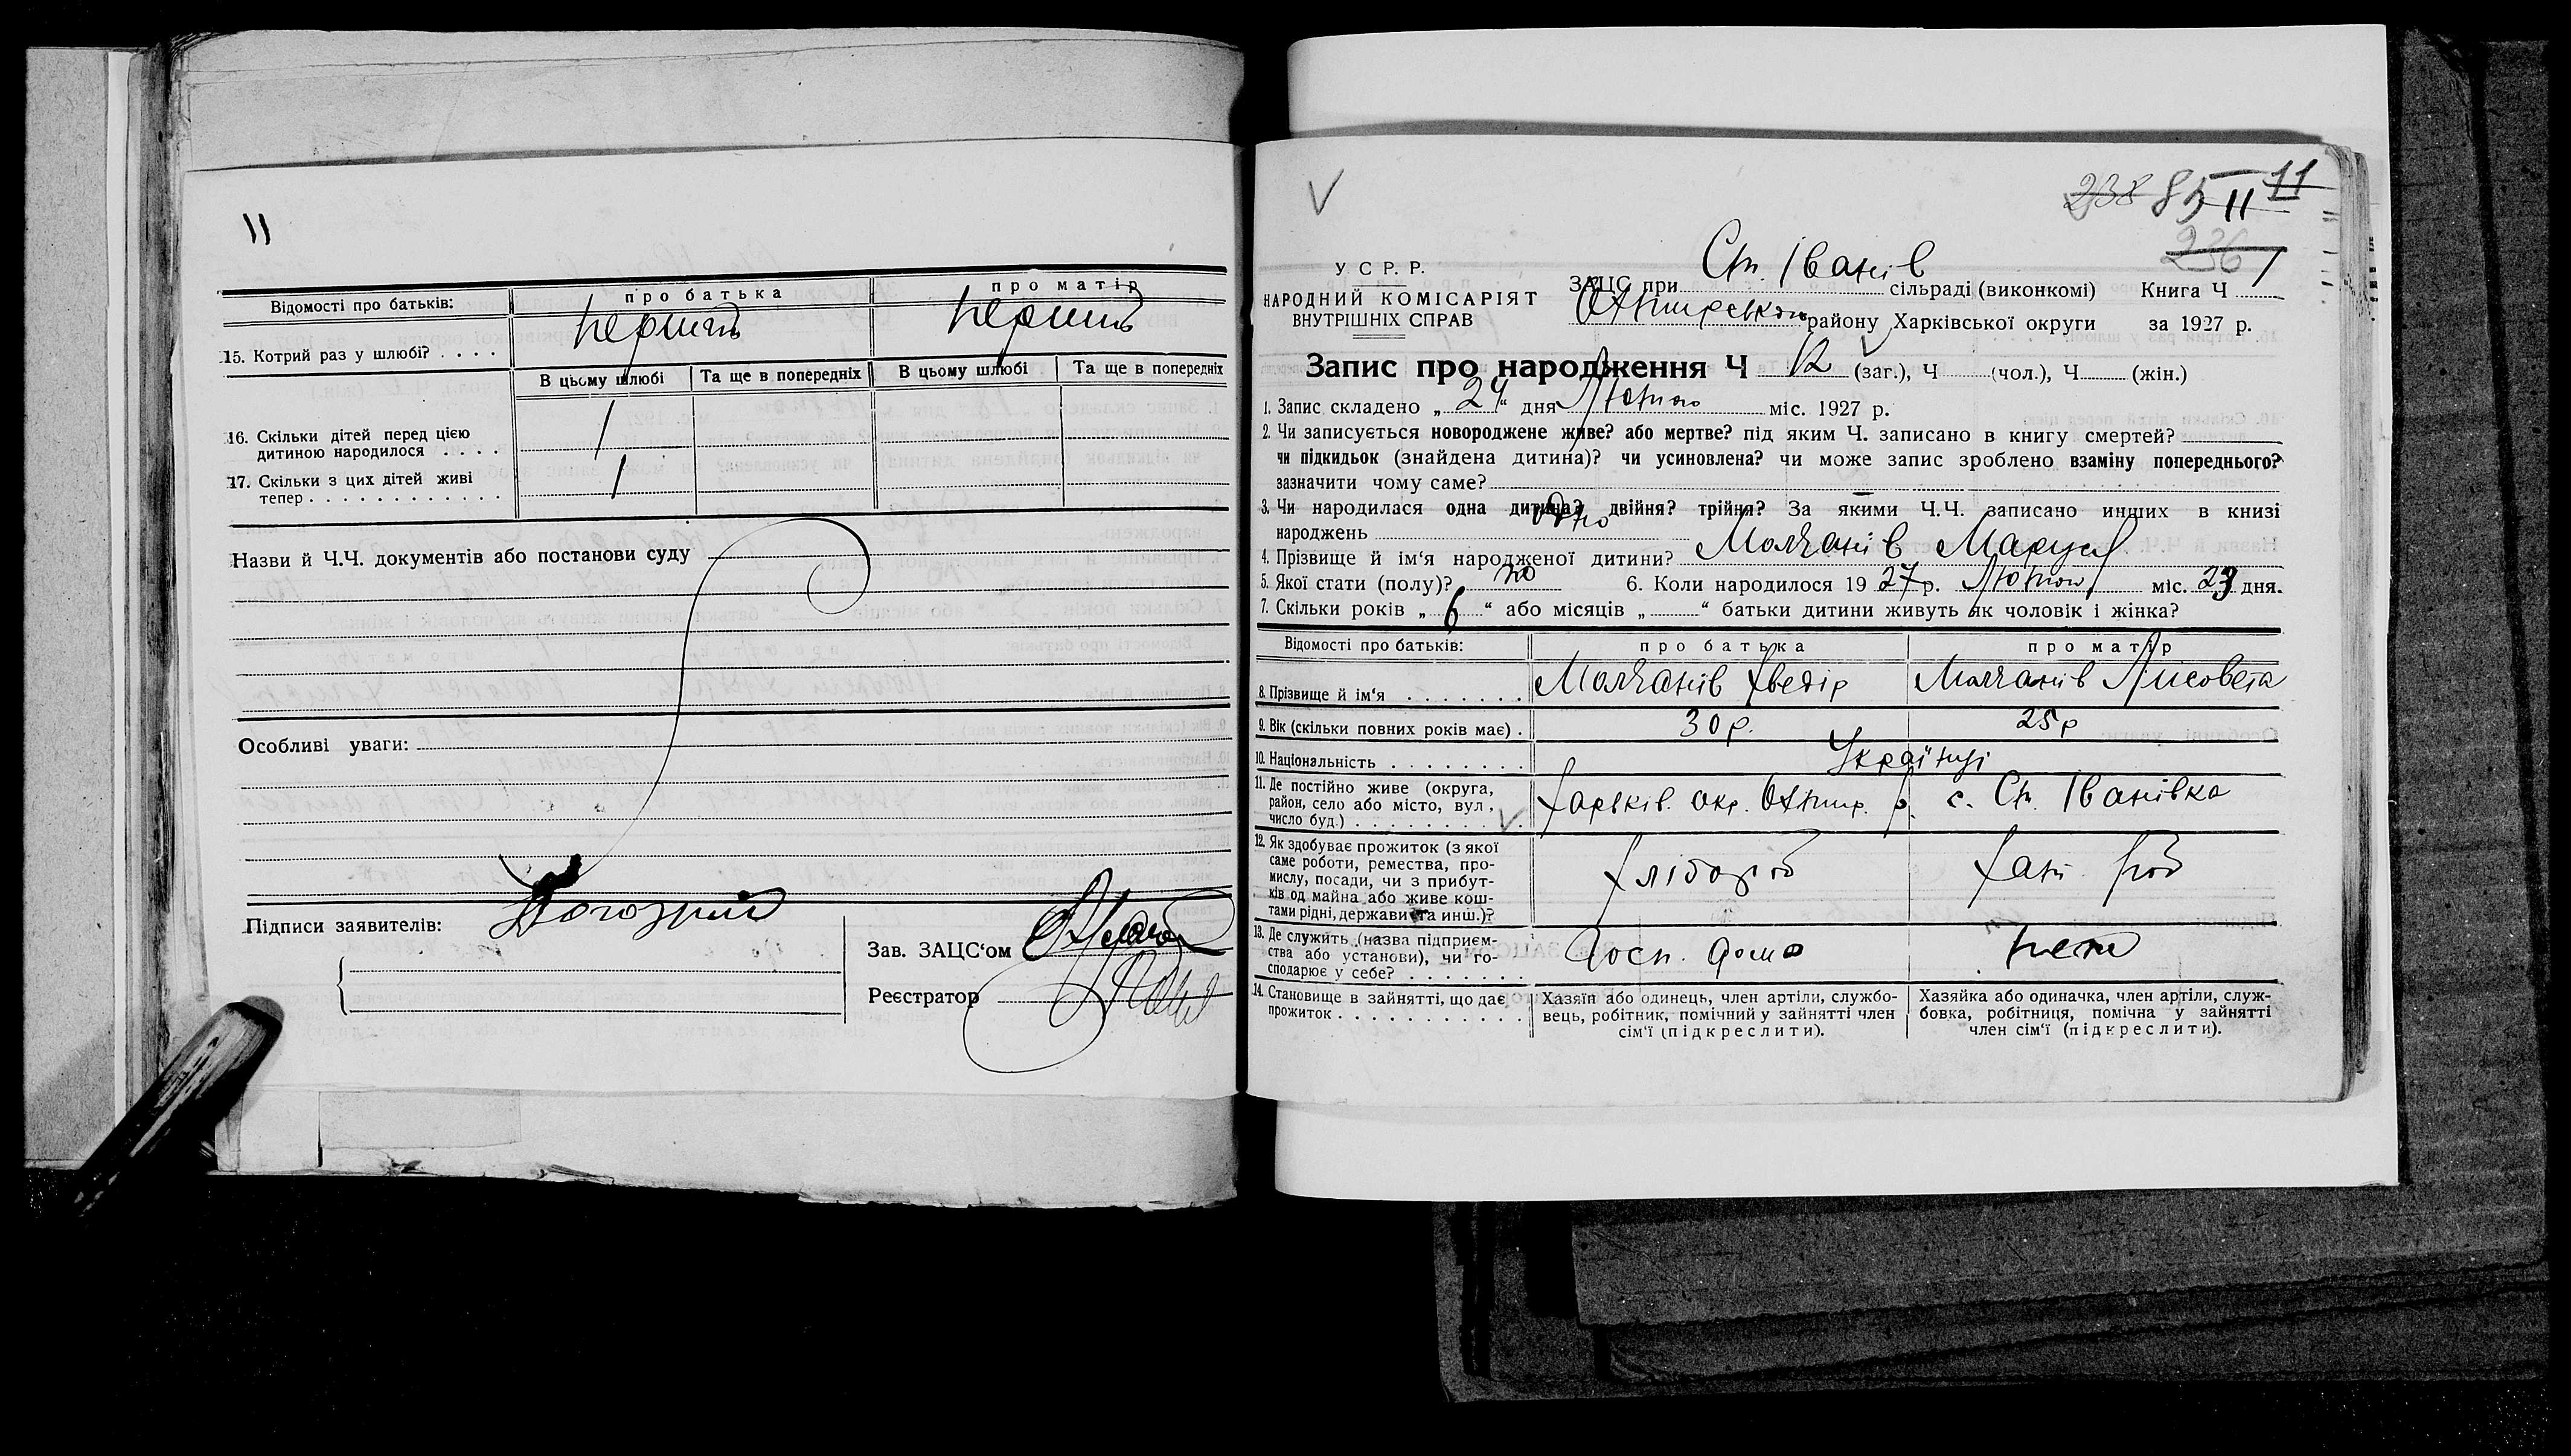 11
Відомості про батьків: про батька про матір
15. Котрий раз у шлюбі? . . . . перший перший
В цьому шлюбі Та ще в попередніх В цьому шлюбі Та ще в попередніх
16. Скільки дітей перед цією
дитиною народилося . . . . 1
17. Скільки з цих дітей живі
тепер . . . . . . . . . . . . 1
Назви й Ч.Ч. документів або постанови суду
Особливі уваги:
Підписи заявителів:
Зав. ЗАЦС‘ом
Реєстратор
V
238 85 II 11 11
236
У. С Р. Р.
НАРОДНИЙ КОМІСАРІЯТ
ВНУТРІШНІХ СПРАВ
ЗАЦС при Ст. Іванів сільраді (виконкомі) Книга Ч 1
Охтирськом району Харківської округи за 1927 р.
Запис про народження Ч 12 (заг.), Ч (чол.), Ч (жін.)
1. Запис складено „ 24 “ дня Лютого міс. 1927 р.
2. Чи записується новороджене живе? або мертве? під яким Ч. записано в книгу смертей?
чи підкидьок (знайдена дитина)? чи усиновлена? чи може запис зроблено взаміну попереднього?
зазначити чому саме?
3. Чи народилася одна дитина? двійня? трійня? За якими Ч.Ч. записано инших в книзі
народжень одно
4. Прізвище й ім‘я народженої дитини? Молчанів Маруся
5. Якої стати (полу)? жо 6. Коли народилося 19 27 р. Лютого міс. 23 дня.
7. Скільки років „ 6 “ або місяців „ “ батьки дитини живуть як чоловік і жінка?
Відомості про батьків: про батька про матір
8. Прізвище й ім‘я . . . . . . . Молчанів Хведір Молчанів Лисовета
9. Вік (скільки повних років має) . 30 р. 25 р
10. Національність . . . . . . . . Українці
11. Де постійно живе (округа,
район, село або місто, вул.,
число буд.) . . . . . . . . . Харьків. окр. Охтир. р. с. Ст. Іванівка
12. Як здобуває прожиток (з якої
саме роботи, ремества, про-
мислу, посади, чи з прибут-
ків од майна або живе кош-
тами рідні, держави та инш.)? Хлібороб
13. Де служить (назва підприєм-
ства або установи), чи го-
сподарює у себе? . . . . . . . Госп. дома
14. Становище в зайнятті, що дає
прожиток . . . . . . . . . . .
Хазяїн або одинець, член артіли, службо-
вець, робітник, помічний у зайнятті член
сім‘ї (підкреслити).
Хазяйка або одиначка, член артіли, служ-
бовка, робітниця, помічна у зайнятті
член сім‘ї (підкреслити).